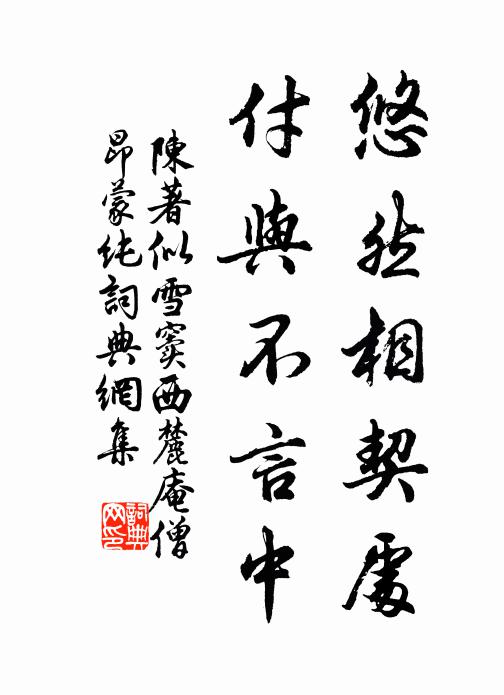 悠然相契處
付與不言中
陳著似雪竇西麓庵僧
昂蒙純詞典網集
詞典
网印